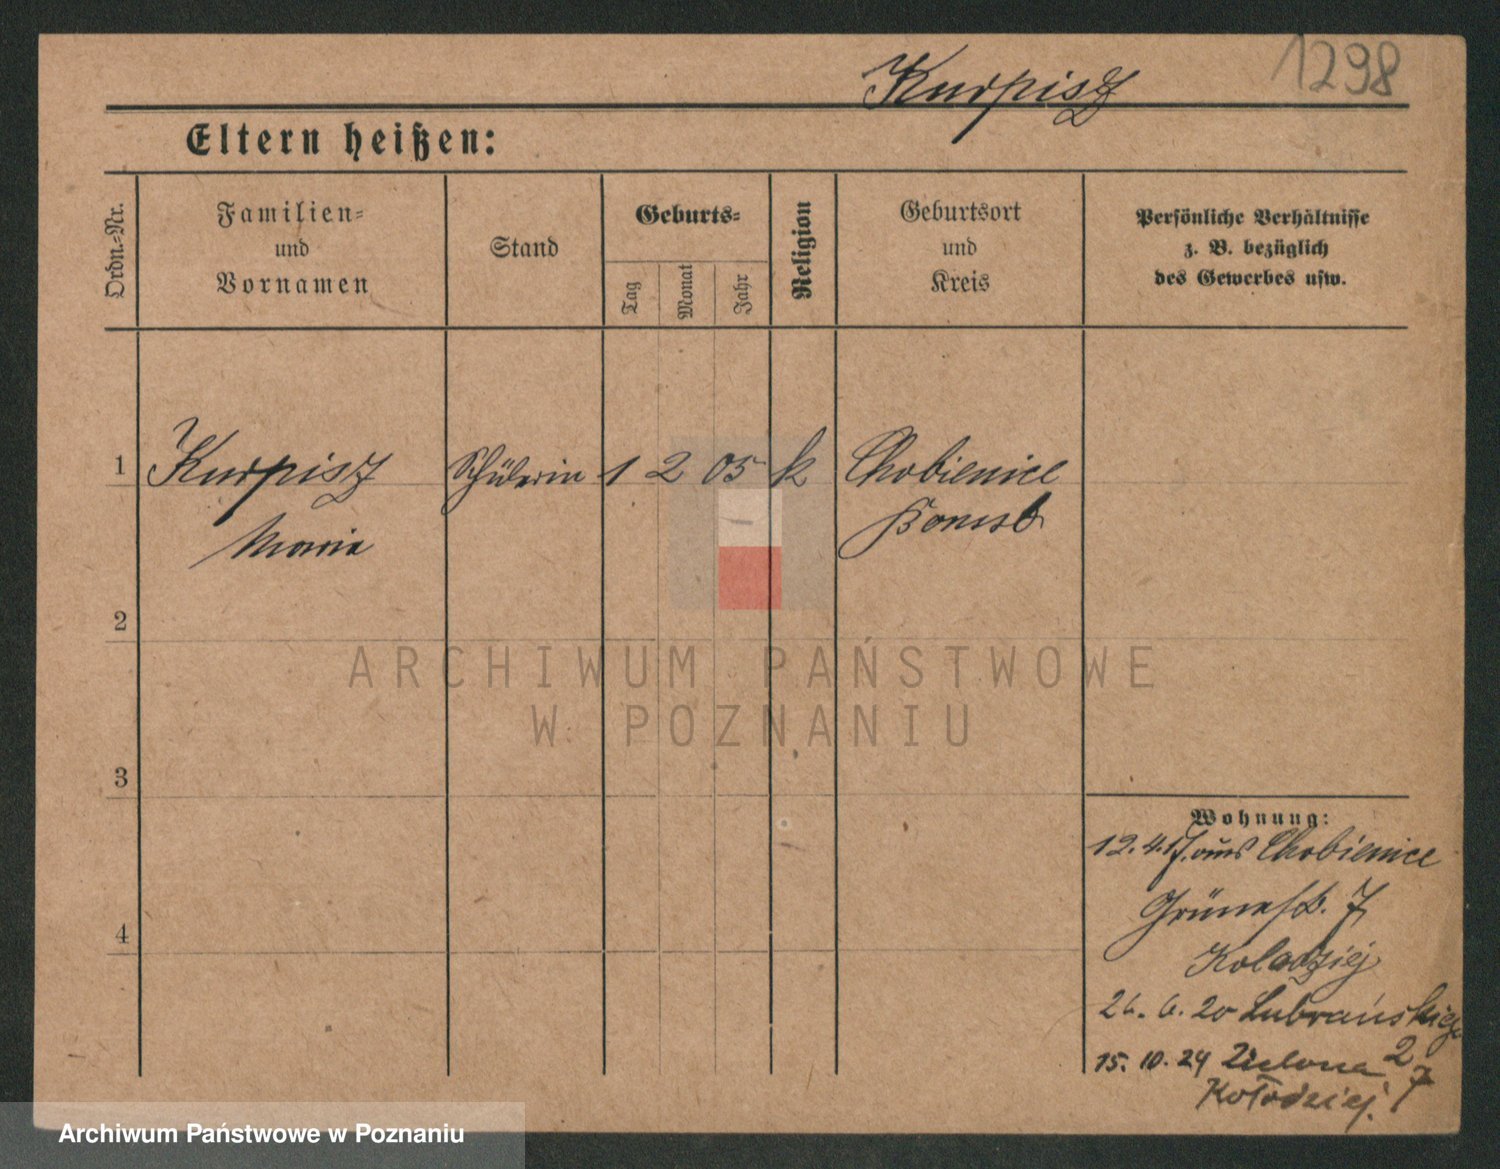 Kurpisz
1298
Eltern heißen:
Ordn.-Nr.
Familien-
und
Vornamen
Stand
Geburts-
Tag
Monat
Jahr
Religion
Geburtsort
und
Kreis
Persönliche Verhältnisse
z. B. bezüglich
des Gewerbes usw.
1 Kurpisz Schülerin 1 2 05 k Chobienice
Maria Bomst
2
ARCHIWUM PAŃSTWOWE
W POZNANIU
3
Wohnung:
12.4.17. aus Chobienice
Grünestr. 7
4
Koladziej
26. 6. 20 Lubrańskiego
2
15. 10. 24 Zielona 7
Kołodziej.
Archiwum Państwowe w Poznaniu